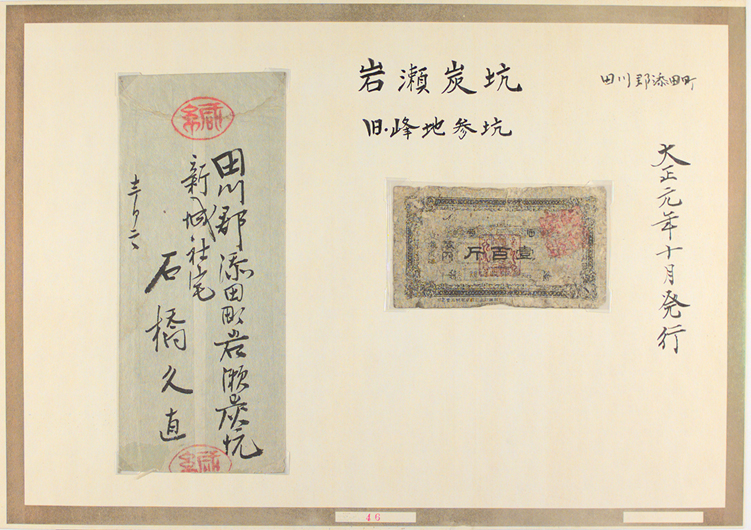 岩瀬炭坑
旧.峰地参坑
田川郡添田町
大正元年十月発行
緘
田川郡添田町岩瀬炭坑
新城社宅
石橋久直
緘
壹百斤
46